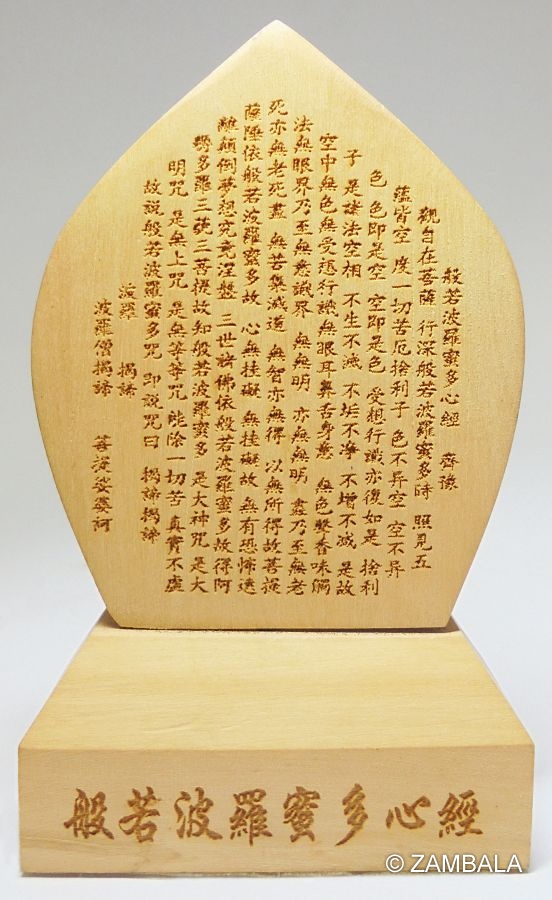 般若波羅蜜多心經
觀自在菩薩 行深般若波羅蜜多時 照見五
蘊皆空 度一切苦厄捨利子 色不异空 空不异
色 色即是空 空即是色 受想行識亦復如是 捨利
子 是諸法空相 不生不滅 不垢不淨 不增不減 是故
空中無色無受想行識無眼耳鼻舌身意 無色聲香味觸
法無眼界乃至無意識界 無無明 亦無無明 盡乃至無老
死亦無老死盡 無苦集滅道 無智亦無得 以無所得故菩提
薩陲依般若波羅蜜多故 心無挂礙 無挂礙故 無有恐怖遠
離顛倒夢想究竟涅盤 三世諸佛依般若波羅蜜多故得阿
耨多羅三藐三菩提故知般若波羅蜜多 是大神咒 是大
明咒 是無上咒 是無等等咒 能除一切苦 真實不虛
故說般若波羅蜜多咒 即說咒曰 揭諦揭諦
波羅 揭諦
波羅僧揭諦 菩提娑婆訶
般若波羅蜜多心經
© ZAMBALA